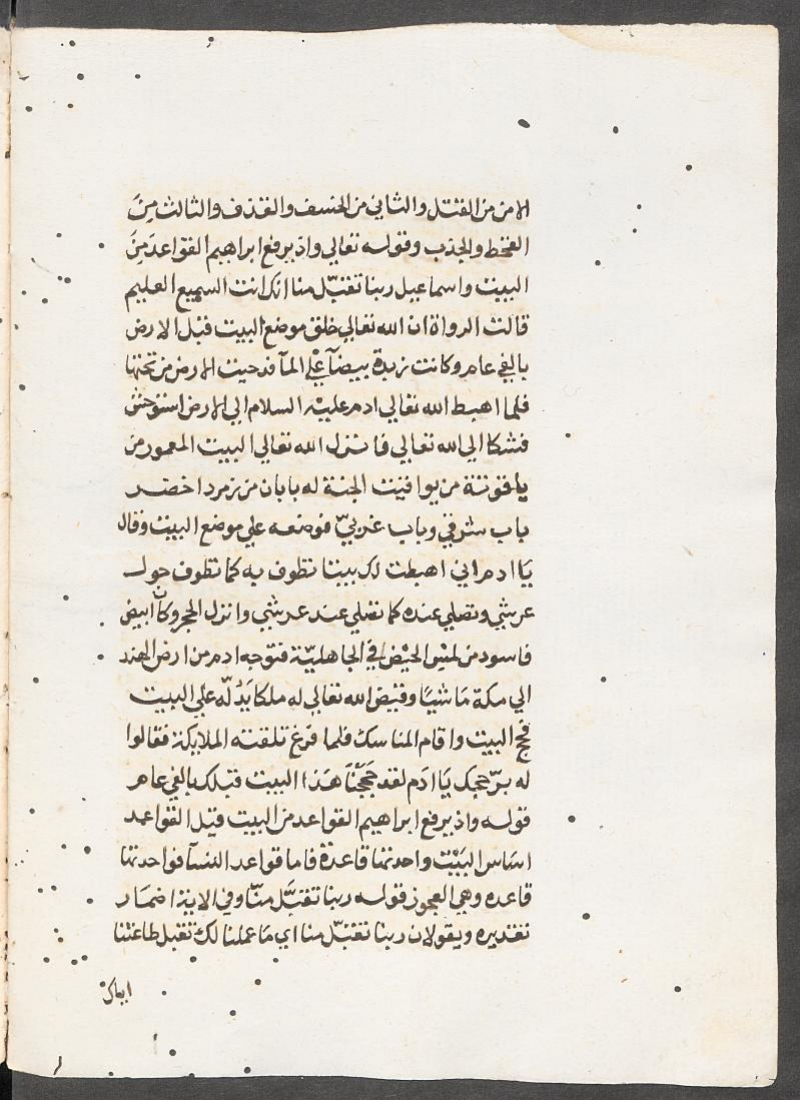 الامن من القتل والثاني من الخسف والقذف والثالث مِنَ
القحط والجذب وقوله تعالي واذ يرفع ابراهيم القواعدَ مِنَ
البيت واسماعيل ربنا تقبّل منا انك انت السميع العليم
قالت الرواة ان الله تعالي خلق موضع البيت قبل الارض
بالفي عام وكانت زبدة بيضآ علي المآ فدحيت الارض من تحتها
فلما اهبط الله تعالي ادم عليه السلام الي الارض استوحش
فشكا الي الله تعالي فانزل الله تعالي البيت المعمور من
ياقوتة من يواقيت الجنة له بابان من زمرد اخضر
باب شرقي وباب غربيّ فوضعه علي موضع البيت وقال
يَا ادم اني اهبطت لك بيتا تطوف به كما تطوف حول
عرشي وتصلي عنده كما تصلي عند عرشي وانزل الحجر وكان ابيض
فاسود من لمس الحيّض في الجاهليّة فتوجه ادم من ارض الهند
الي مكة مَاشيًا وقيض الله تعالي له ملكا يَدُلّه علي البيت
فحج البيت واقام المناسك فلما فرغ تلقته الملايكة فقالوا
له برّ حجك يَا ادَم لقد حَجَجْنَا هَذا البيت قبلك بالفي عام
قوله واذ يرفع ابراهيم القواعد من البيت قيل القواعد
اسَاس البَيْت واحدتها قاعدة فاما قواعد النسآ فواحدتها
قاعده وهي العجوز قوله ربنا تقبَّل منّا وفي الاية اضمَار
تقديره ويقولان ربنا تقبّل منا اي مَا عملنا لك تقبل طاعتنا
اياك